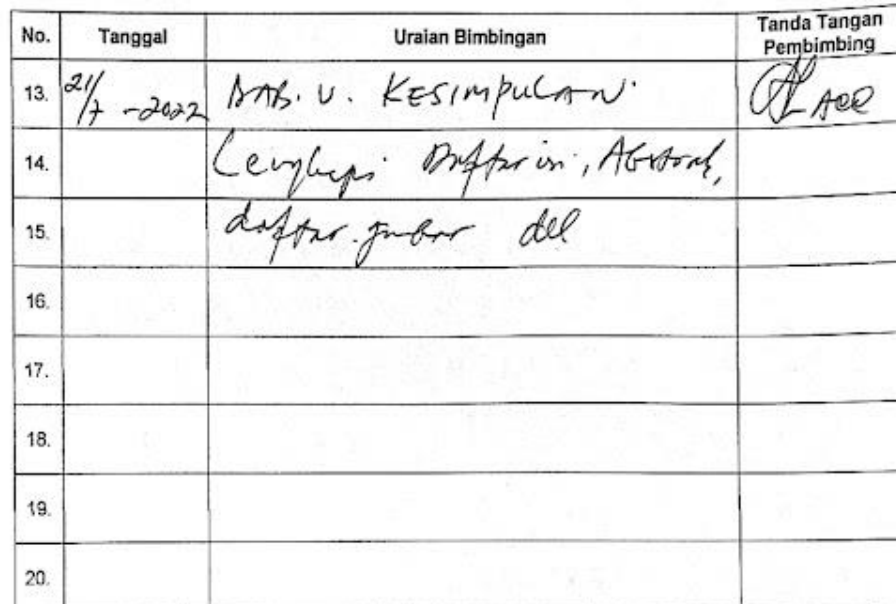 No. Tanggal Uraian Bimbingan Tanda Tangan Pembimbing
13. 21/7 -2022 BAB. V. KESIMPULAN. ACC
14. Lengkapi Daftar isi, Abstrak,
15. daftar gambar dll
16.
17.
18.
19.
20.